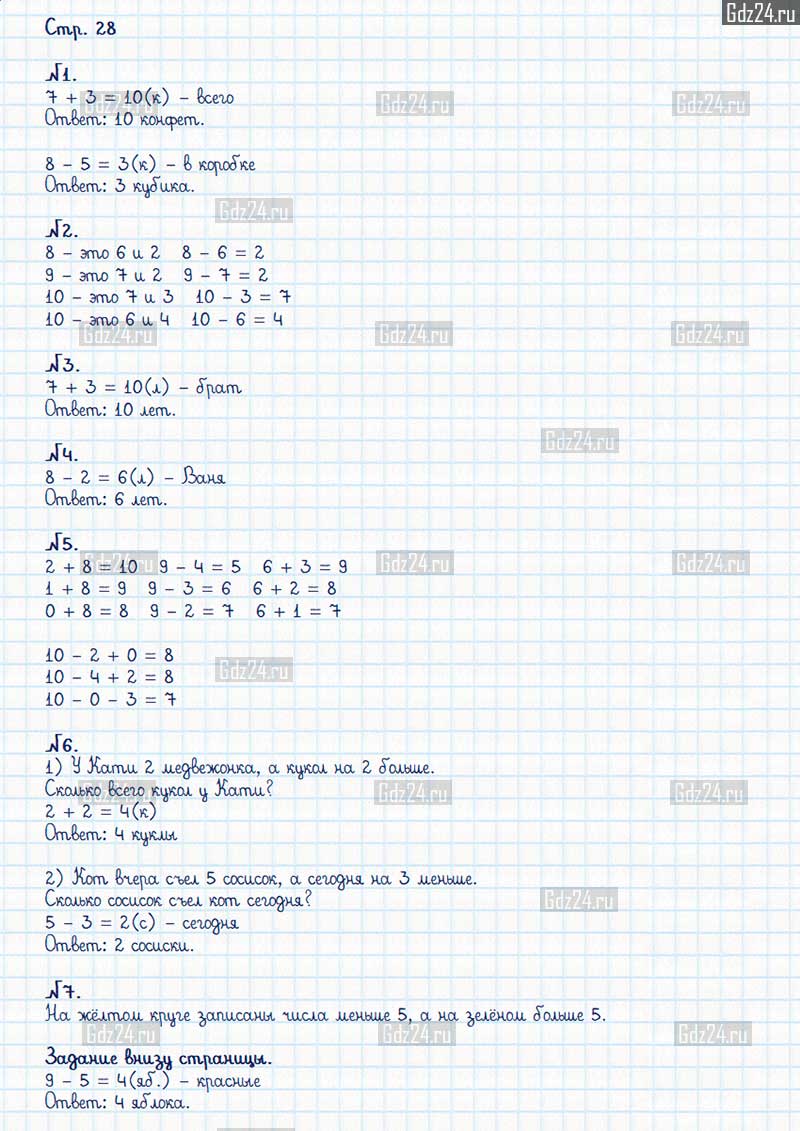 Gdz24.ru
Стр. 28
№1.
7 + 3 = 10(к) – всего
Ответ: 10 конфет.
8 – 5 = 3(к) – в коробке
Ответ: 3 кубика.
№2.
8 – это 6 и 2 8 – 6 = 2
9 – это 7 и 2 9 – 7 = 2
10 – это 7 и 3 10 – 3 = 7
10 – это 6 и 4 10 – 6 = 4
№3.
7 + 3 = 10(л) – брат
Ответ: 10 лет.
№4.
8 – 2 = 6(л) – Ваня
Ответ: 6 лет.
№5.
2 + 8 = 10 9 – 4 = 5 6 + 3 = 9
1 + 8 = 9 9 – 3 = 6 6 + 2 = 8
0 + 8 = 8 9 – 2 = 7 6 + 1 = 7
10 – 2 + 0 = 8
10 – 4 + 2 = 8
10 – 0 – 3 = 7
№6.
1) У Кати 2 медвежонка, а кукол на 2 больше.
Сколько всего кукол у Кати?
2 + 2 = 4(к)
Ответ: 4 куклы
2) Кот вчера съел 5 сосисок, а сегодня на 3 меньше.
Сколько сосисок съел кот сегодня?
5 – 3 = 2(с) – сегодня
Ответ: 2 сосиски.
№7.
На жёлтом круге записаны числа меньше 5, а на зелёном больше 5.
Задание внизу страницы.
9 – 5 = 4(яб.) – красные
Ответ: 4 яблока.